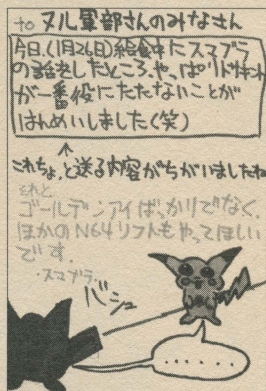 to ヌル軍部さんのみなさん
今日、(1月26日)給食中にスマブラ
の話をしたところ、やっぱりドンキー
が一番役にたたないことが
はんめいしました(笑)
↑
これちょっと送る内容がちがいましたね
それと、
ゴールデンアイばっかりでなく、
ほかのN64ソフトもやってほしい
です。
・スマブラ・
バシュ
・・・・・